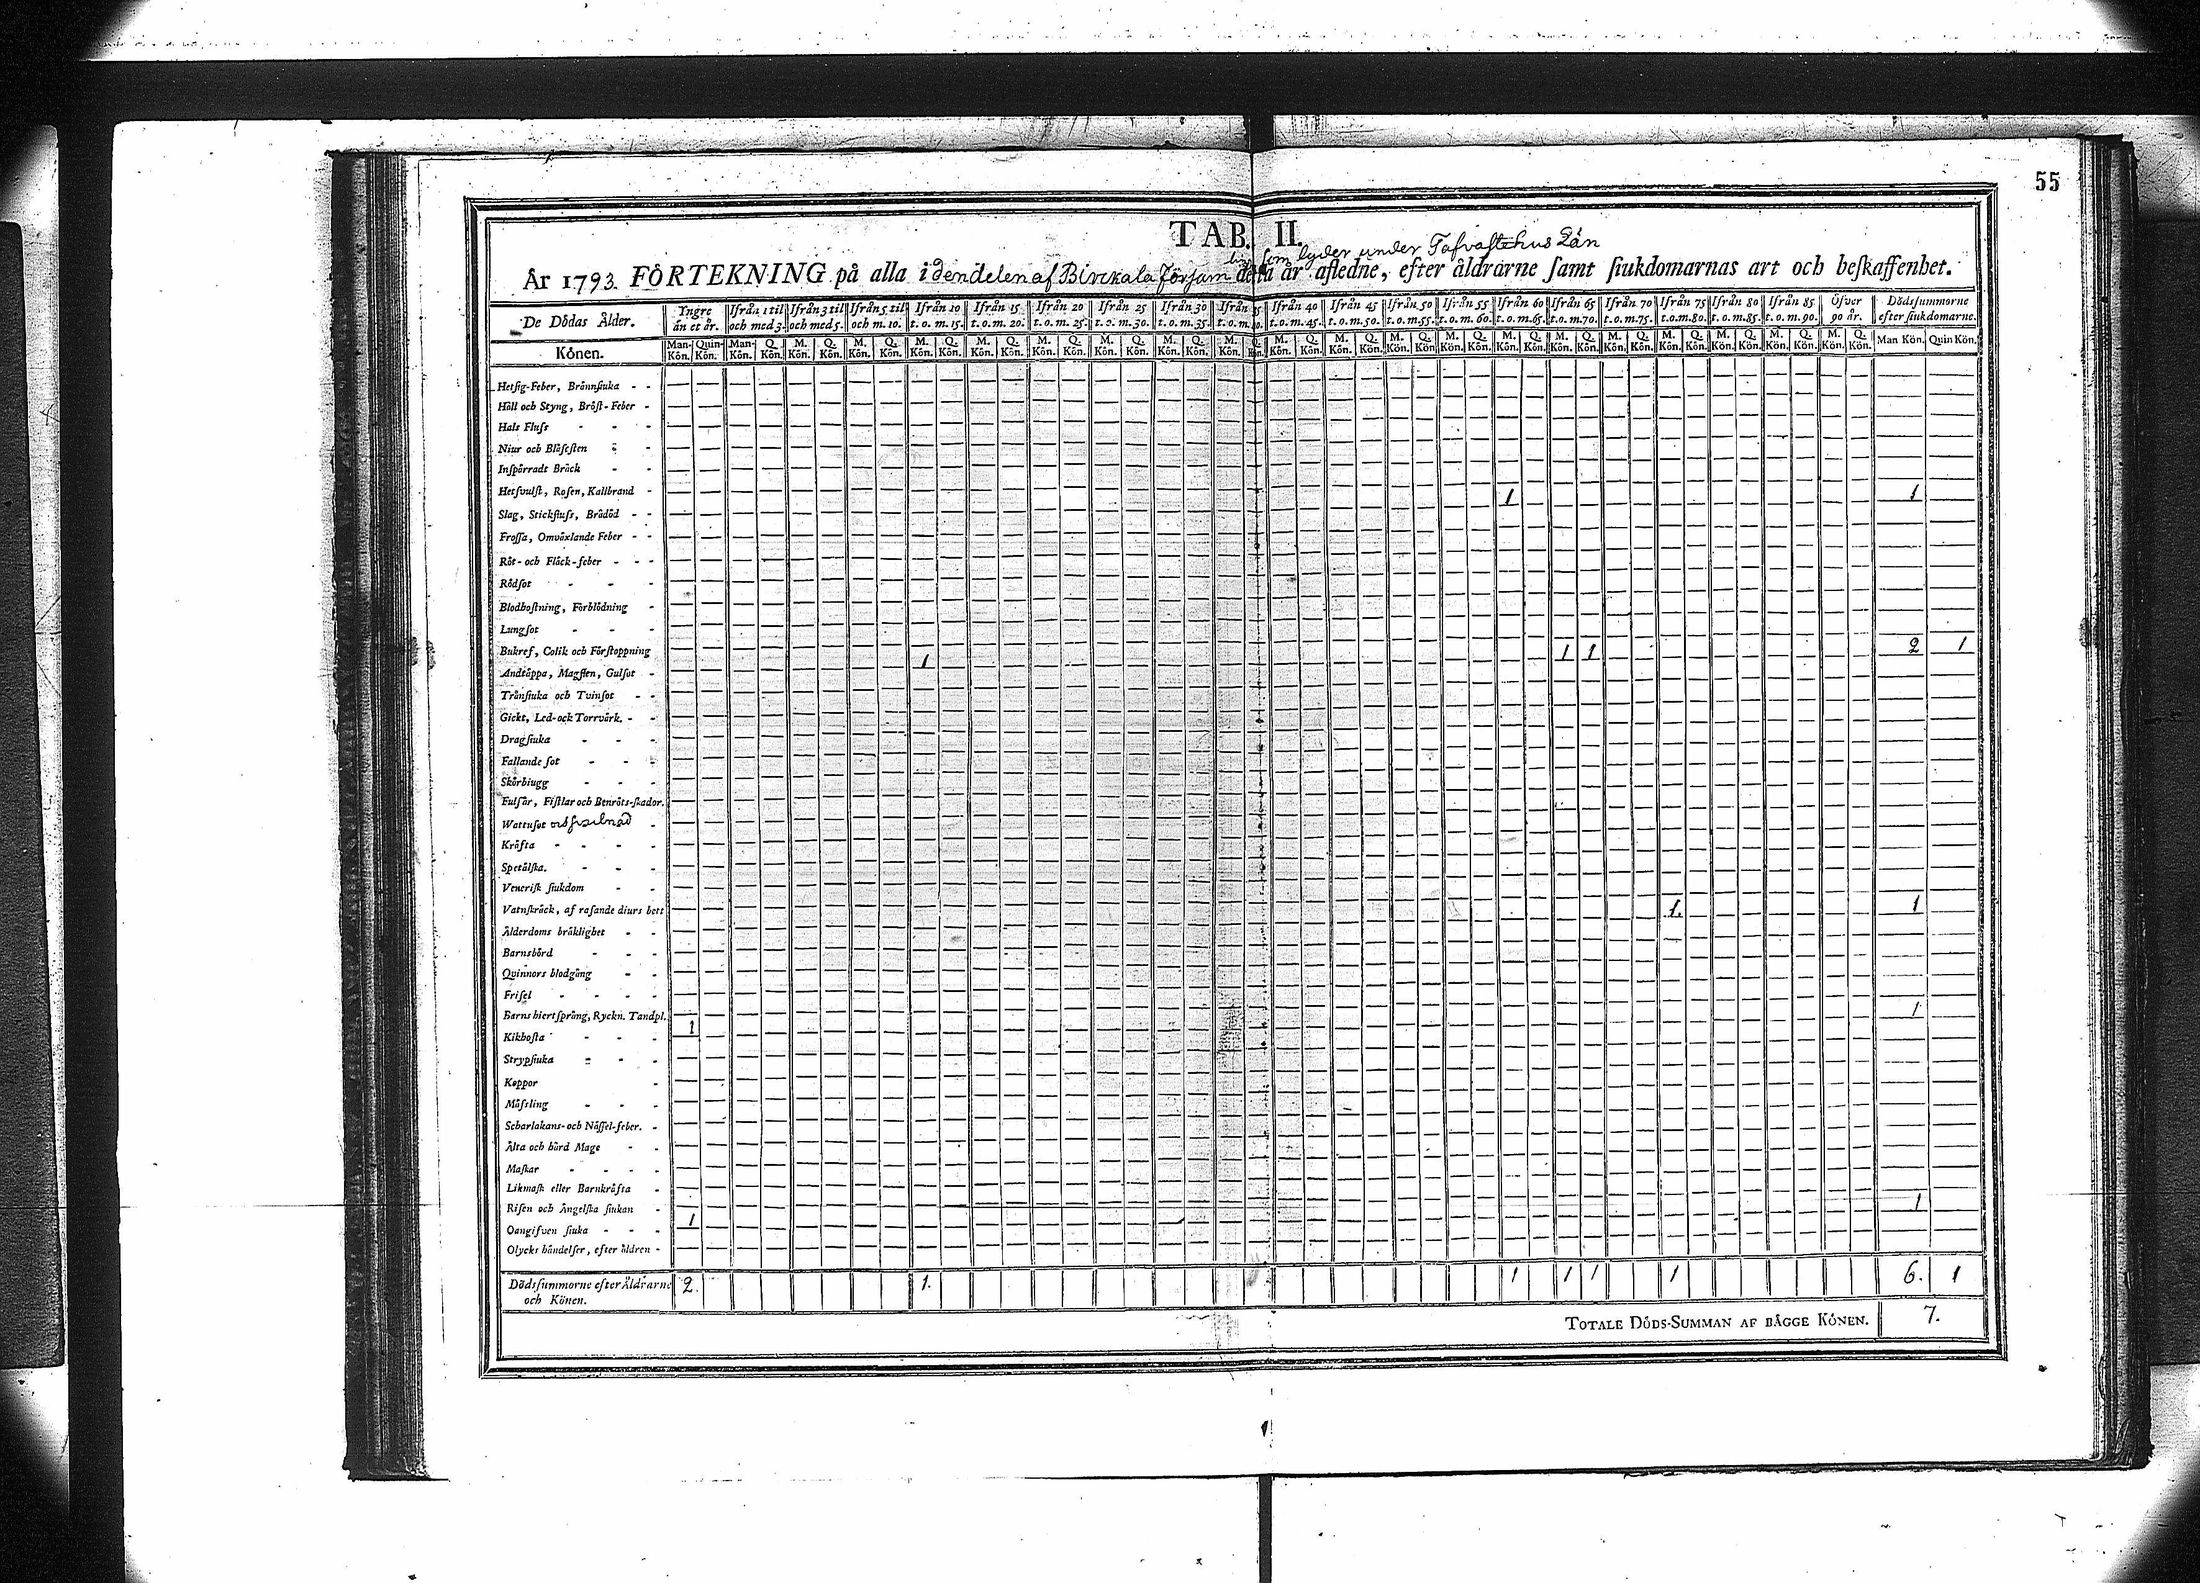 55
TAB. II.
ling som lyder under Tafvastehus Län
År 1793. FÖRTEKNING på alla i den delen af Birckala Församdetta år afledne, efter åldrarne samt siukdomarnas art och beskaffenhet.
De Dödas Ålder. Yngre än et år. Ifrån 1 til och med 3. Ifrån 3 til och med 5. Ifrån 5 til och m. 10. Ifrån 10 t. o. m. 15. Ifrån 15 t. o. m. 20. Ifrån 20 t. o. m. 25. Ifrån 25 t. o. m. 30. Ifrån 30 t. o. m. 35. Ifrån 35 t. o. m. 40. Ifrån 40 t. o. m. 45. Ifrån 45 t. o. m. 50. Ifrån 50 t. o. m. 55. Ifrån 55 t. o. m. 60. Ifrån 60 t. o. m. 65. Ifrån 65 t. o. m. 70. Ifrån 70 t. o. m. 75. Ifrån 75 t. o. m. 80. Ifrån 80 t. o. m. 85. Ifrån 85 t. o. m. 90. Öfver 90 år. Dödssummorne efter siukdomarne.
Könen. Man-Kön. Quin-Kön. Man-Kön. Q. Kön. M. Kön. Q. Kön. M. Kön. Q. Kön. M. Kön. Q. Kön. M. Kön. Q. Kön. M. Kön. Q. Kön. M. Kön. Q. Kön. M. Kön. Q. Kön. M. Kön. Q. Kön. M. Kön. Q. Kön. M. Kön. Q. Kön. M. Kön. Q. Kön. M. Kön. Q. Kön. M. Kön. Q. Kön. M. Kön. Q. Kön. M. Kön. Q. Kön. M. Kön. Q. Kön. M. Kön. Q. Kön. M. Kön. Q. Kön. M. Kön. Q. Kön. Man Kön. Quin Kön.
Hetsig-Feber, Brännsiuka - -
Håll och Styng, Bröst-Feber -
Hals Fluss - - -
Niur och Blåsesten - -
Inspärradt Bråck - -
Hetsvulst, Rosen, Kallbrand - 1 1
Slag, Stickfluss, Brådöd - -
Frossa, Omväxlande Feber - -
Röt- och Fläck-feber - - -
Rödsot - - -
Blodhostning, Förblödning -
Lungsot - - -
Bukref, Colik och Förstoppning 1 1 1 2 1
Andtäppa, Magsten, Gulsot -
Trånsiuka och Tvinsot - -
Gickt, Led-ock Torrvärk. - -
Dragsiuka - - -
Fallande sot - - -
Skörbiugg - - -
Fulsår, Fistlar och Benröts-skador.
Wattusot -
Kräfta - - - -
Spetälska. - - -
Venerisk siukdom - -
Vatnskräck, af rasande diurs bett 1. 1
Ålderdoms bräklighet - -
Barnsbörd - - -
Qvinnors blodgång - -
Frisel - - - -
Barns hiertsprång, Ryckn. Tandpl. 1 1
Kikhosta - - -
Strypsiuka - - -
Koppor -
Måssling - - -
Scharlakans- och Nässel-feber. -
Älta och hård Mage - -
Maskar - - - -
Likmask eller Barnkräfta -
Risen och Ängelska siukan - 1 1
Oangifven siuka - - -
Olycks händelser, efter åldren -
Dödssummorne efter Åldrarne 2. 1. 1 1 1 1 6. 1
och Könen.
TOTALE DÖDS-SUMMAN AF BÅGGE KÖNEN. 7.